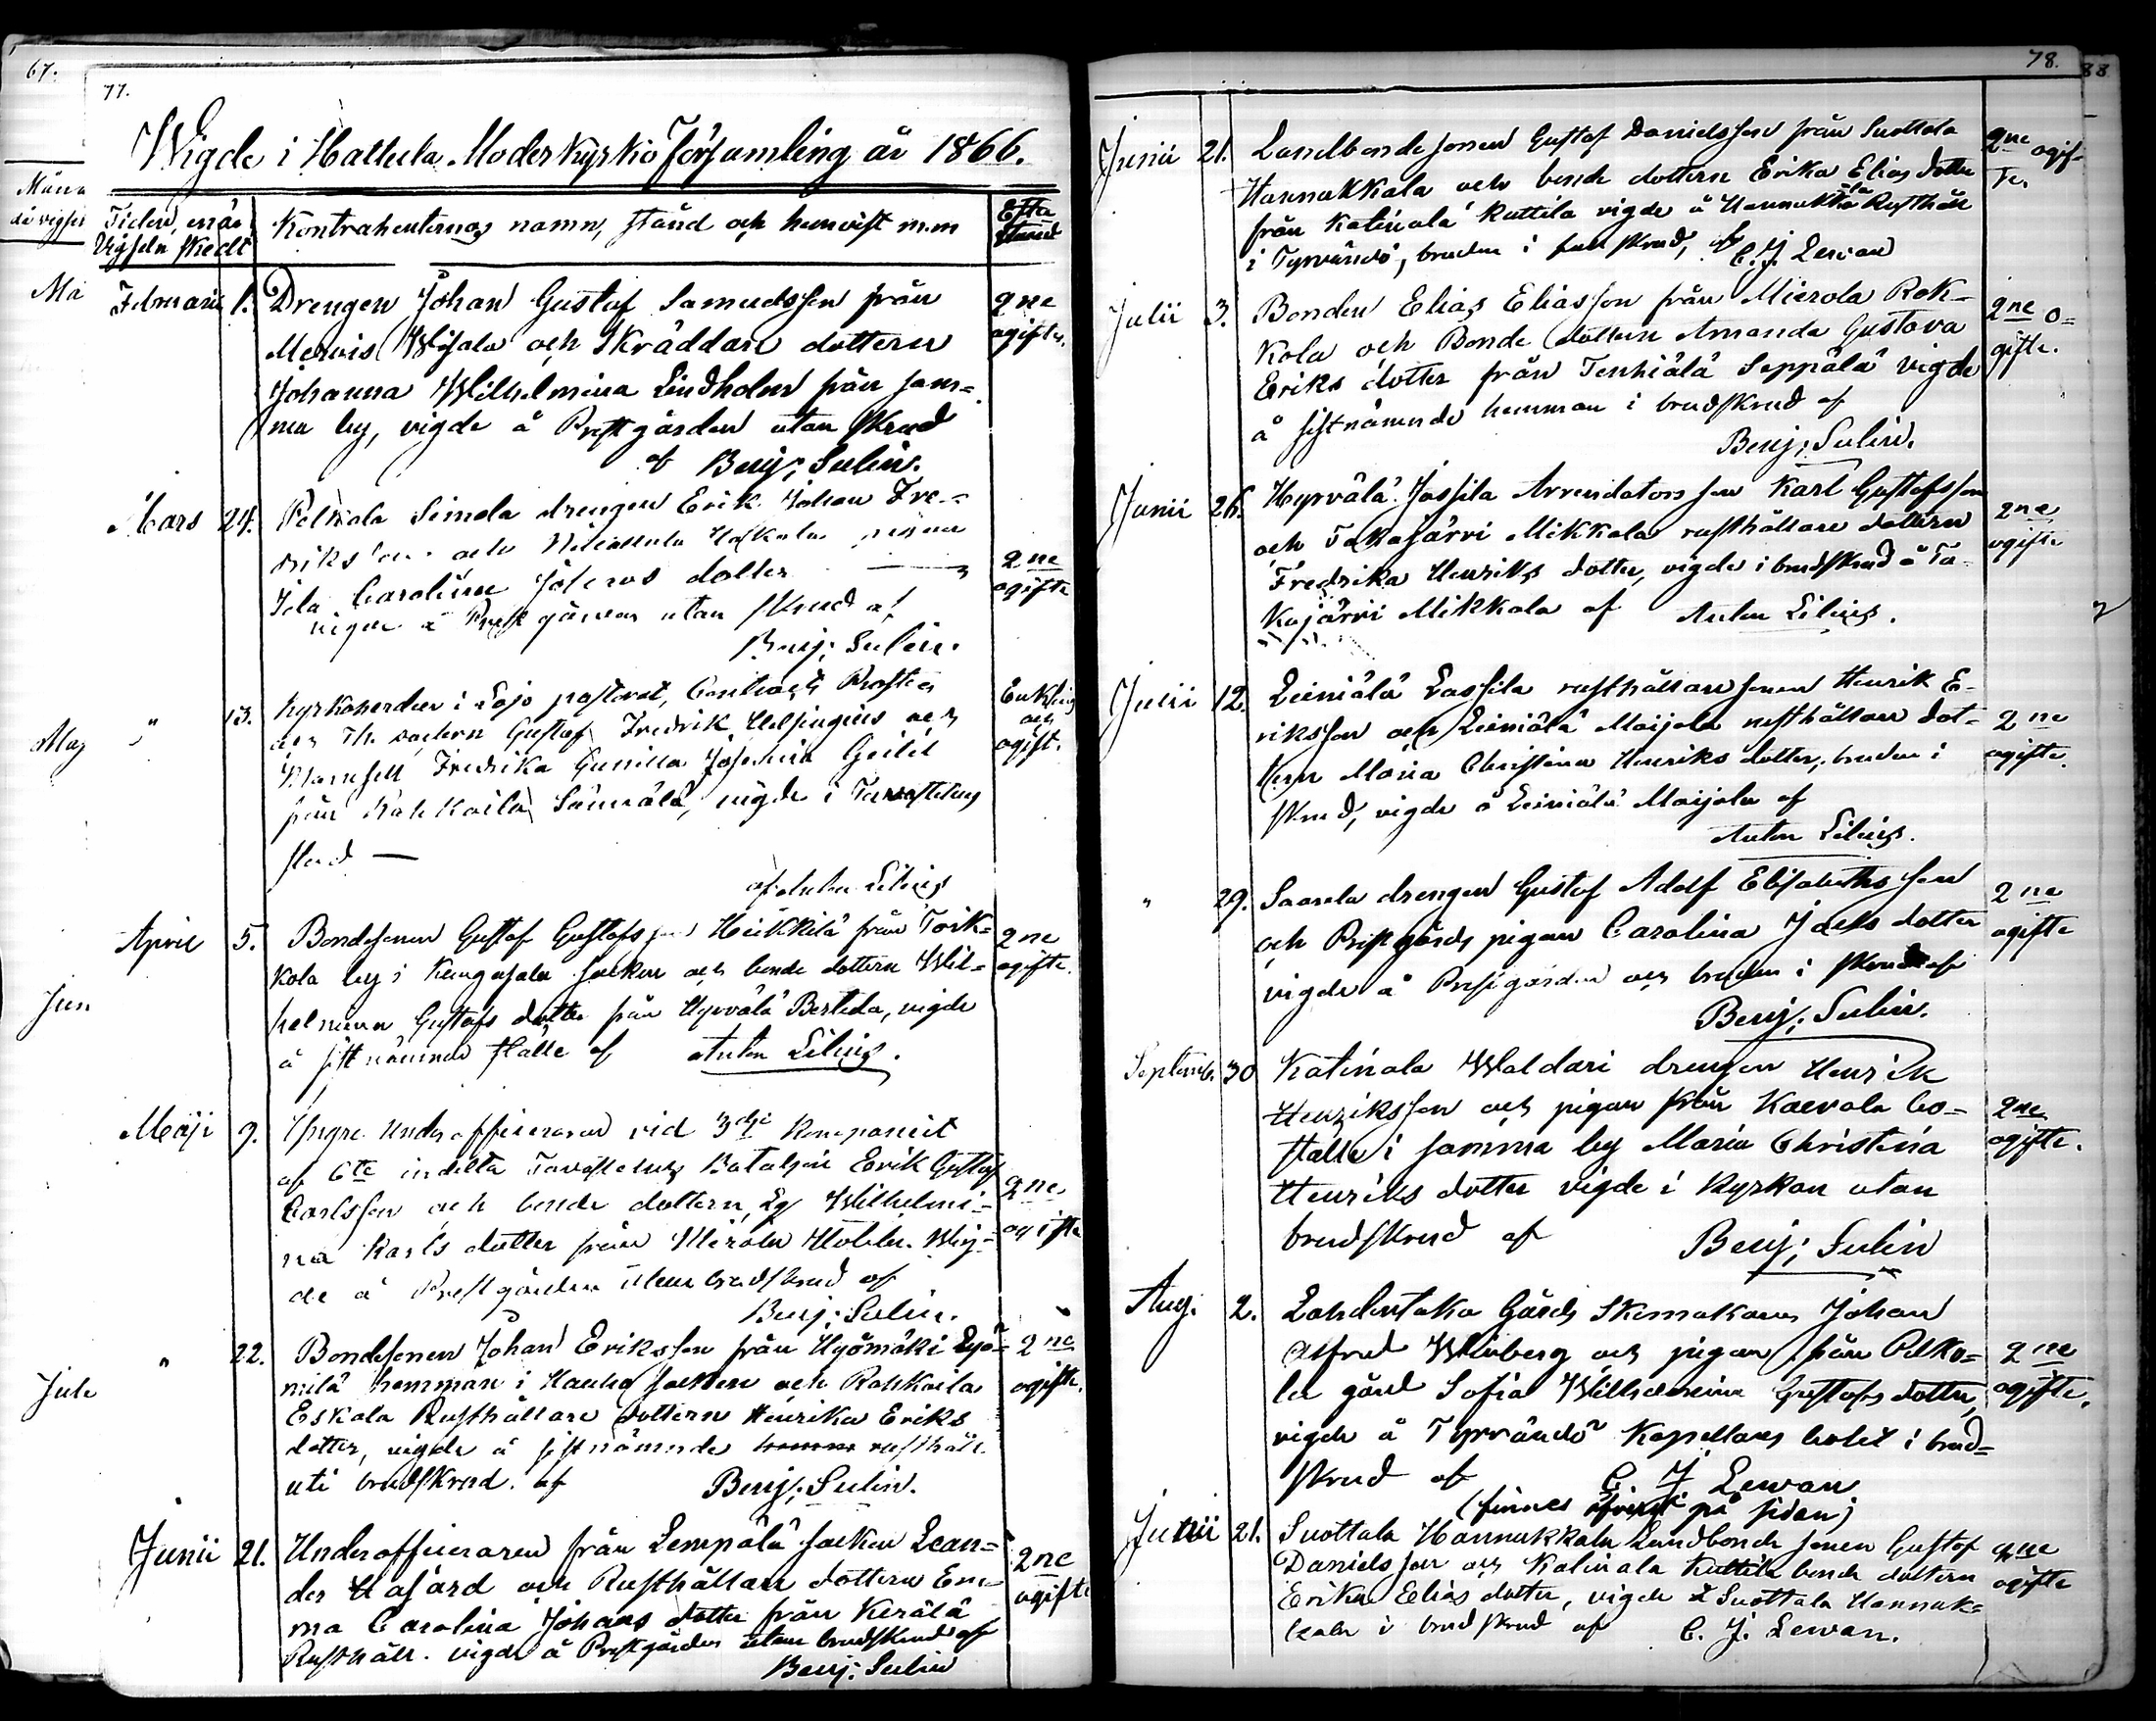 67.
77.
Wigde i Hattula Moderkyrko Församling år 1866.
Tiden, när Vigseln skedt
Kontrahenternas namn, stånd och hemvist m.m
Ekta stånd
Februarii 1. Drengen Johan Gustaf Samuelsson från
Merois Wijala och Skräddare dottern
Johanna Wilhelmina Lindholm från sam=
ma by, vigde å Prestgården utan skrud
af Benj: Sulin.
2ne ogifte.
Mars 24. Pelkola Simola drengen Erik Johan Fre=
driksson och pigan
Ida Carolina Josefs dotter
vigde å Prestgården utan skrud af
Benj: Sulin.
2ne ogifte
" 13. Kyrkoherden i Lojo pastorat, Contracts Prosten
och Th. Doctorn Gustaf Fredrik Helsingius och
Mamsell Fredrika Gunilla Josefina Geitel
från Rahkoila Sännälä, vigde i Tavastehus
stad —
af Anton Lilius
Enkling och ogift.
April 5. Bondesonen Gustaf Gustafsson Heikkilä från Torik=
kola by i Kangasala socken och bonde dottern Wil=
helmina Gustafs dotter från Hyrvälä Bertila, vigde
å sistnämnda ställe af Anton Lilius.
2ne ogifte.
Maji 9. Yngre Underofficeraren vid 3dje Kompaniet
af 6te indelta Tavastehus Bataljon Erik Gustaf
Carlsson och bonde dottern Wilhelmi=
na Karls dotter från Mierola Wig=
de å Prestgården utan brudskrud af
Benj: Sulin.
2ne ogifte
" 22. Bondesonen Johan Eriksson från Hyömäki Lyö=
milä hemman i Hauho socken och Rahkoila
Eskola Rusthållare dottern Henrika Eriks
dotter, vigde å sistnämnde rusthåll
uti brudskrud. af Benj: Sulin.
2ne ogifte.
Junii 21. Underofficeraren från Lempälä socken Lean=
der Hasard och Rusthållare dottern Em=
ma Carolina Johans dotter från Kerälä
Rusthåll. vigde å Prestgården utan brudskrud af
Benj: Sulin
2ne ogifte
78.
88
Junii 21. Landbondesonen Gustaf Danielsson från Suottala
Hannukkala och bonde dottern Erika Elias dotter
från Katinala Kuttila vigde å Hannukkala Rusthåll
i Tyrvändö, bruden i full skrud, af
C. J. Lewan
2ne ogif=
te.
Julii 3. Bonden Elias Eliasson från Mierola Rok=
kola och Bonde dottern Amanda Gustava
Eriks dotter från Tenhiälä Seppälä vigde
å sistnämnde hemman i brudskrud af
Benj: Sulin.
2ne o=
gifte.
Junii 26. Hyrvälä Jossila Arrendators son Karl Gustafsson
och Takajärvi Mikkola rusthållare dottern
Fredrika Henriks dotter, vigde i brudskrud å Ta=
kajärvi Mikkola af Anton Lilius.
2ne ogifte
Julii 12. Leiniälä Lassila rusthållare sonen Henrik E=
riksson och Leiniälä Maijala rusthållare dot=
tern Maria Christina Henriks dotter, bruden i
skrud, vigde å Leiniälä Maijala af
Anton Lilius.
2ne ogifte.
" 29. Saarela drengen Gustaf Adolf Elisabethsson
och Prestgårds pigan Carolina Jacks dotter
vigde å Prestgården och bruden i skrud af
Benj: Sulin.
2ne ogifte
Septemb. 30 Katinala Waldari drengen Henrik
Henriksson och pigan från Kaevola bo=
ställe i samma by Maria Christina
Henriks dotter vigde i Kyrkan utan
brudskrud af Benj: Sulin
2ne ogifte.
Aug. 2. Lahdentaka Gårds Skomakaren Johan
Alfred Winberg och pigan från Pelko=
la gård Sofia Wilhelmina Gustafs dotter,
vigde å Tyrvändö Kapellans bolet i brud=
skrud af C J Lewan
2ne ogifte.
(finnes på sidan)
Junii 21. Suottala Hannukkala Landbonde sonen Gustaf
Danielsson och Katinala Kuttila bonde dottern
Erika Elias dotter, vigde å Suottala Hannuk=
kala i brudskrud af C. J. Lewan.
2ne ogifte